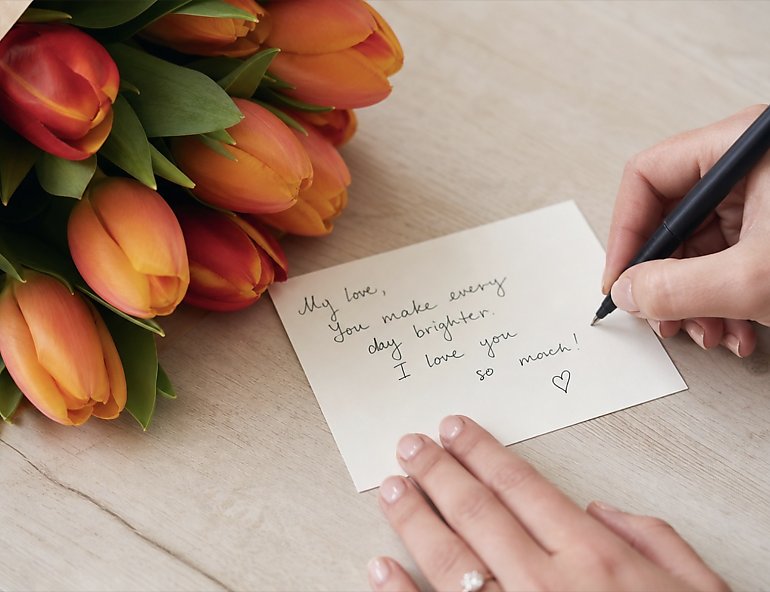 My love,
You make every
day brighter.
I love you
so moch!